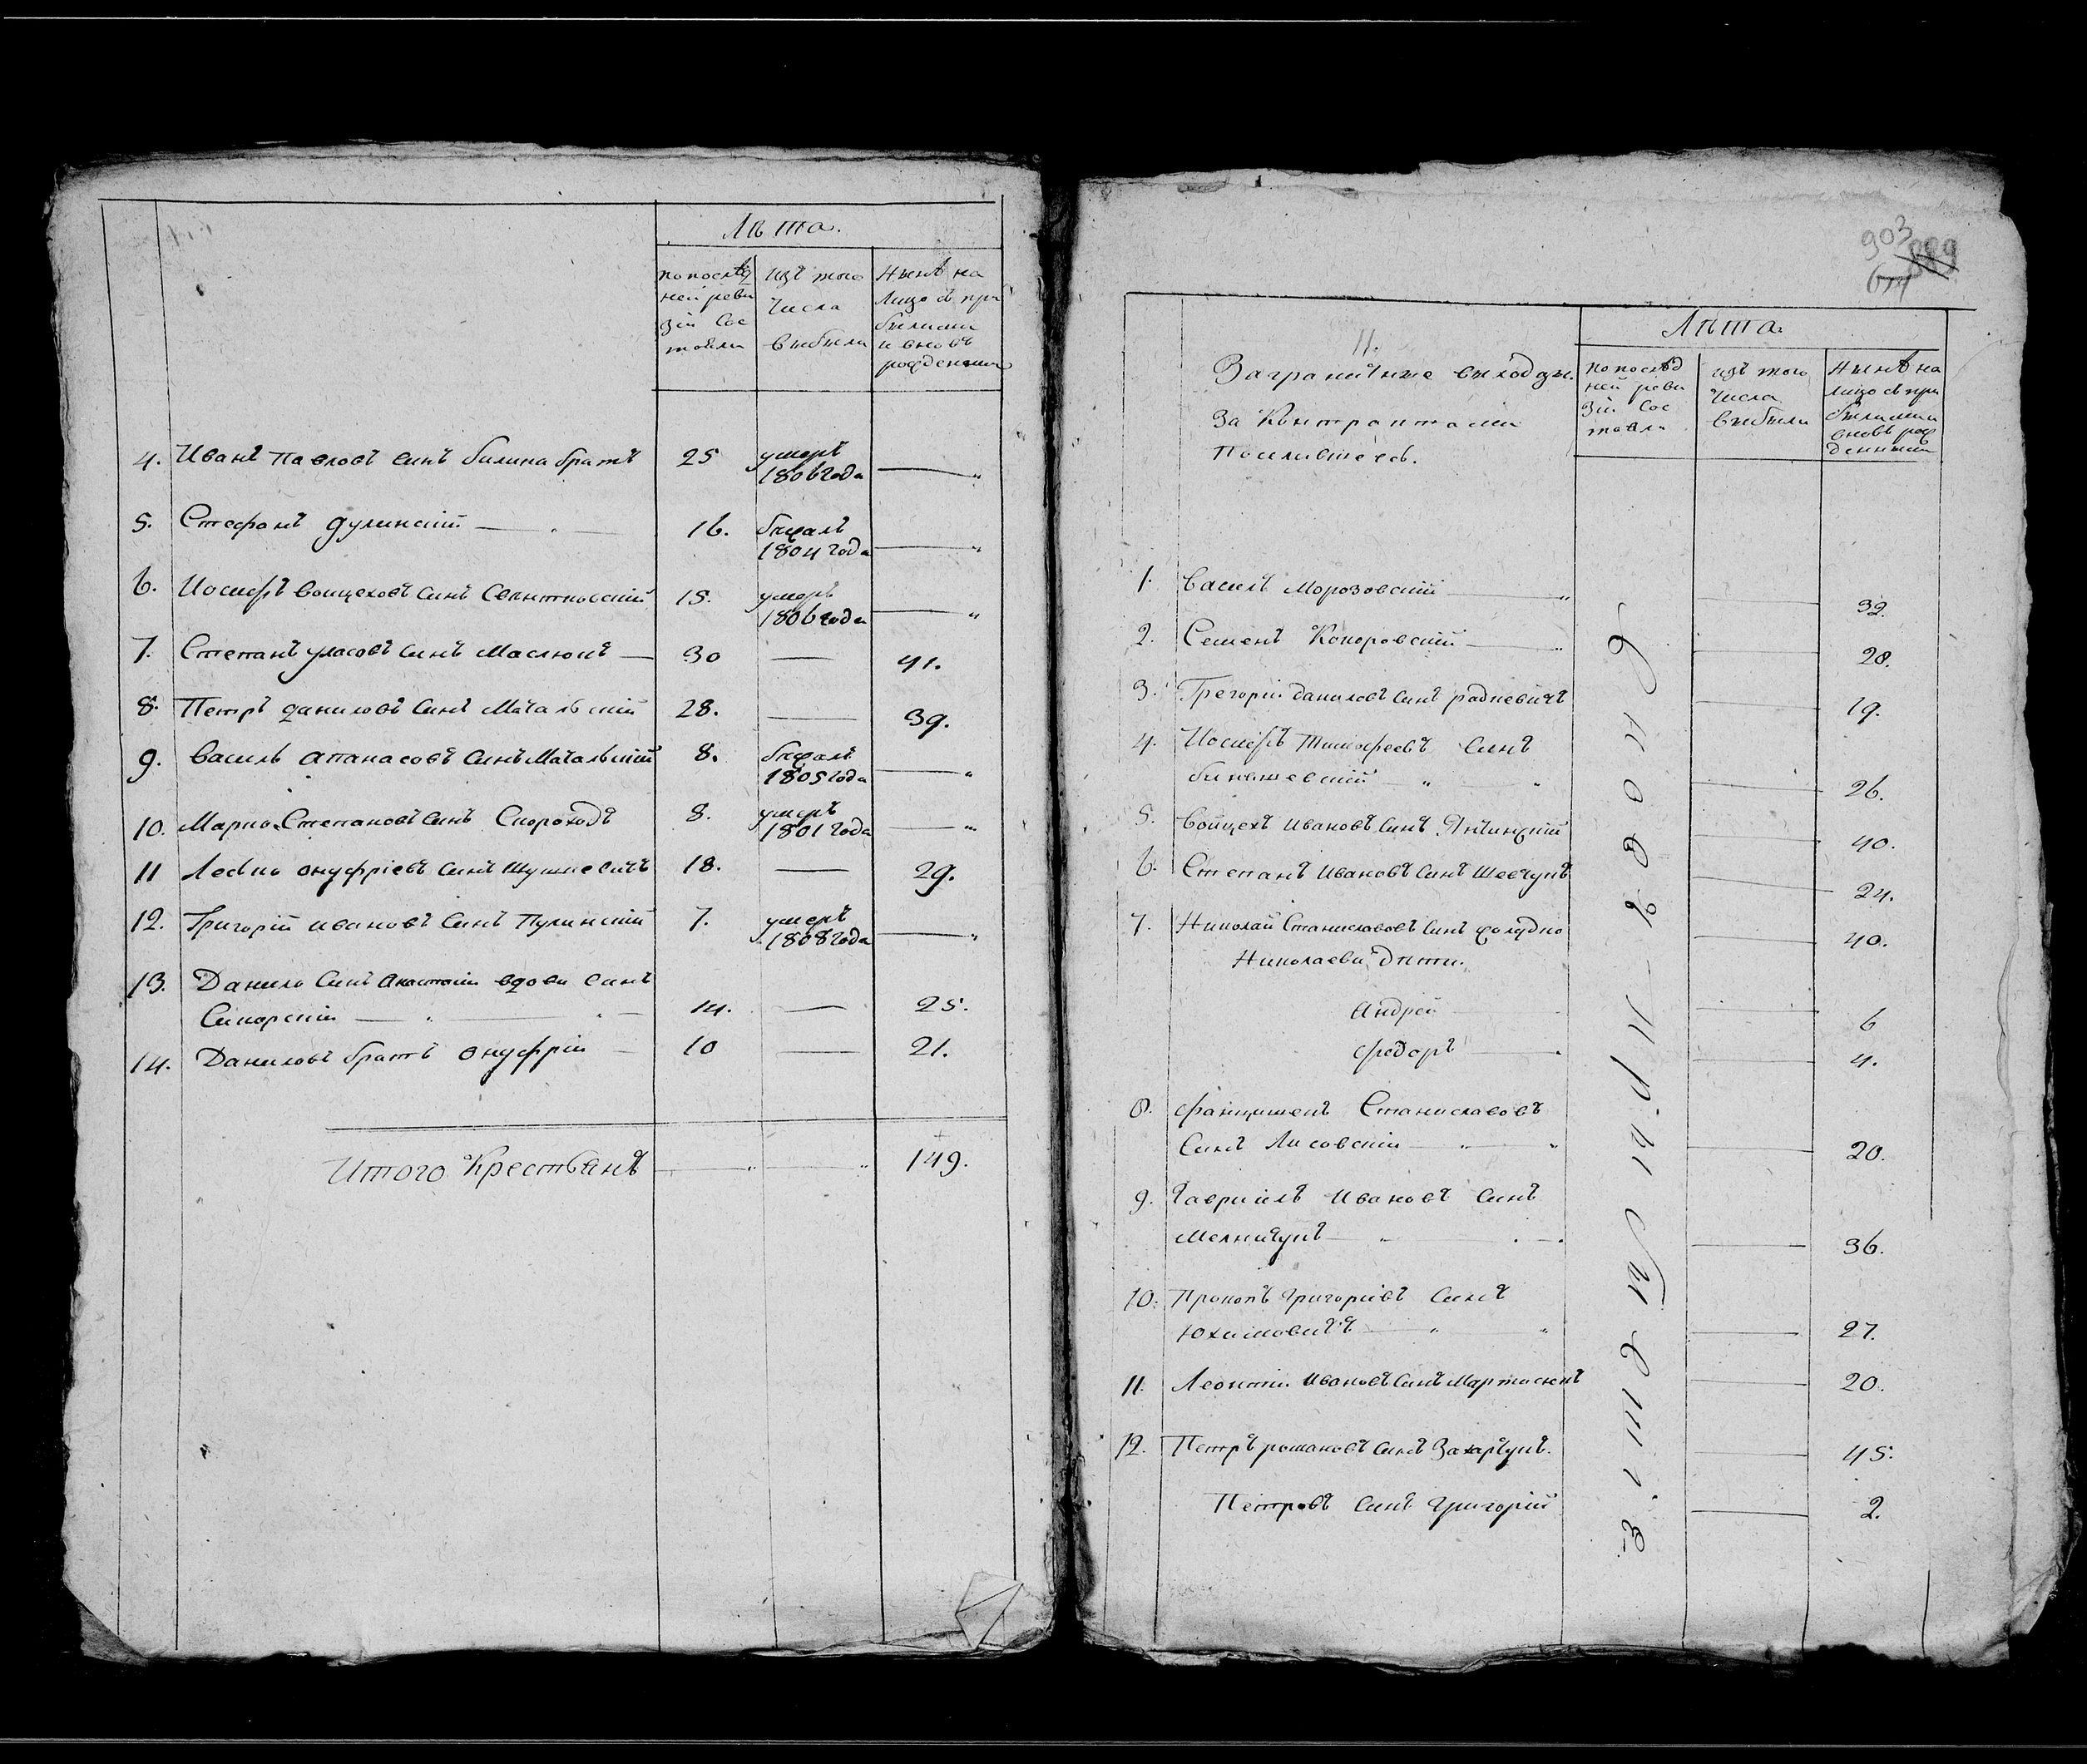 Лѣта.
По послѣд
ней реви
зіи Сос
тояли
изъ того
Числа
выбыли
Нынѣ на
Лицо съ при
былыми
и вновь
рожденными
4. Иванъ Павловъ Синъ билина братъ 25 умеръ
1806 года
5. Стефанъ дулинскій 16. бѣжалъ
1804 года
6. Иосифъ Войцеховъ Синъ 15. умеръ
1806 года
7. Степанъ уласовъ Синъ Маслюкъ 30 41.
8. Петръ даниловъ Синъ Мачальскій 28. 39.
9. Василь апанасовъ Синъ Мачальскій 8. бѣжалъ
1805 года
10. Марко Степановъ Синъ Скороходъ 8. умеръ
1801 года
11 Левко онуфріевъ Синъ 18. 29.
12. Григорій ивановъ Синъ Пулинскій 7. умеръ
1808 года
13. Данило Синъ вдови Синъ
Сикорскій 14. 25.
14. Даниловъ братъ онуфрій 10 21.
Итого Крестьянъ 149.
903
889
11.
Заграничные выходцы.
За Контрактами
Поселившеесь.
Лѣта.
По послѣд
ней реви
зіи Сос
тояли
изъ того
Числа
выбыли
Нынѣ на
лицо съ при
былыми
вновь рож
денными
1. Василь Морозовскій 32.
2. Семенъ Кокоровскій 28.
3. Грегорій даниловъ Синъ радкевичъ 19.
4. Иосифъ Тимофеевъ Синъ
26.
5. Войцехъ ивановъ Синъ 40.
6. Степанъ ивановъ Синъ Шевчукъ 24.
7. Николай Станиславовъ Синъ 40.
Николаеви Дѣти.
андрей 6
федоръ 4.
8. францишекъ Станиславовъ
Синъ Лисовскій 20.
9. Гавриилъ ивановъ Синъ
Мелничукъ 36.
10. Прокопъ григоріевъ Синъ
Юхимовичъ 27.
11. Леонтій ивановъ Синъ Мартинюкъ 20.
12. Петръ романовъ Синъ Захарчукъ. 45.
Петровъ Синъ григорій 2.